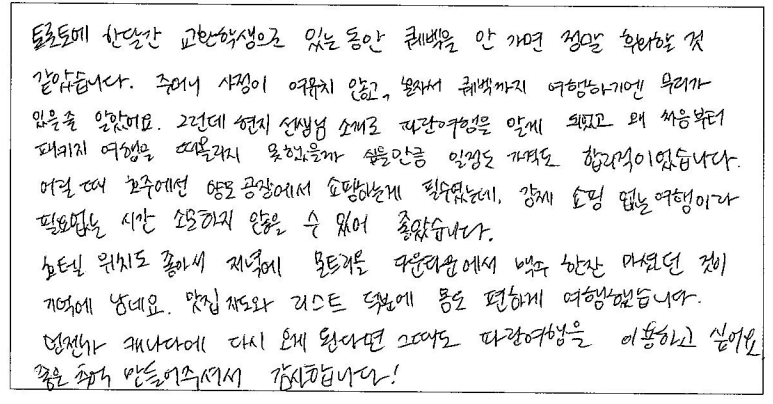 토론토에 한달간 교환학생으로 있는 동안 퀘벡을 안 가면 정말 후회할 것
같았습니다. 주머니 사정이 여유치 않고, 혼자서 퀘벡까지 여행하기엔 무리가
있을줄 알았어요. 그런데 현지 선생님 소개로 파란여행을 알게 되었고 왜 처음부터
패키지 여행을 떠올리지 못했을까 싶을만큼 일정도 가격도 합리적이었습니다.
어릴 때 호주에선 양모 공장에서 쇼핑하는게 필수였는데, 강제 쇼핑 없는 여행이라
필요없는 시간 소모하지 않을 수 있어 좋았습니다.
호텔 위치도 좋아서 저녁에 몬트리올 다운타운에서 맥주 한잔 마셨던 것이
기억에 남네요. 맛집 지도와 리스트 덕분에 몸도 편하게 여행했습니다.
언젠가 캐나다에 다시 오게 된다면 그때도 파란여행을 이용하고 싶어요
좋은 추억 만들어주셔서 감사합니다!